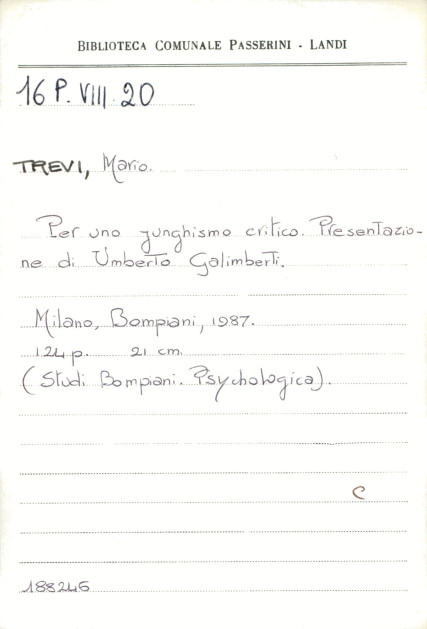 BIBLIOTECA COMUNALE PASSERINI - LANDI
16 P. VIII. 20
TREVI, Mario.
Per uno junghismo critico. Presentazio-
ne di Umberto Galimberti.
Milano, Bompiani, 1987.
124 p. 21 cm.
(Studi Bompiani. Psychologica).
C
188246